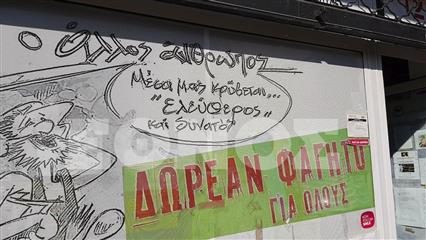 ο άλλος άνθρωπος
Μέσα μας κρύβεται
„Ελεύθερος„
και δυνατός
ΔΩΡΕΑΝ ΦΑΓΗΤΟ
ΓΙΑ ΟΛΟΥΣ